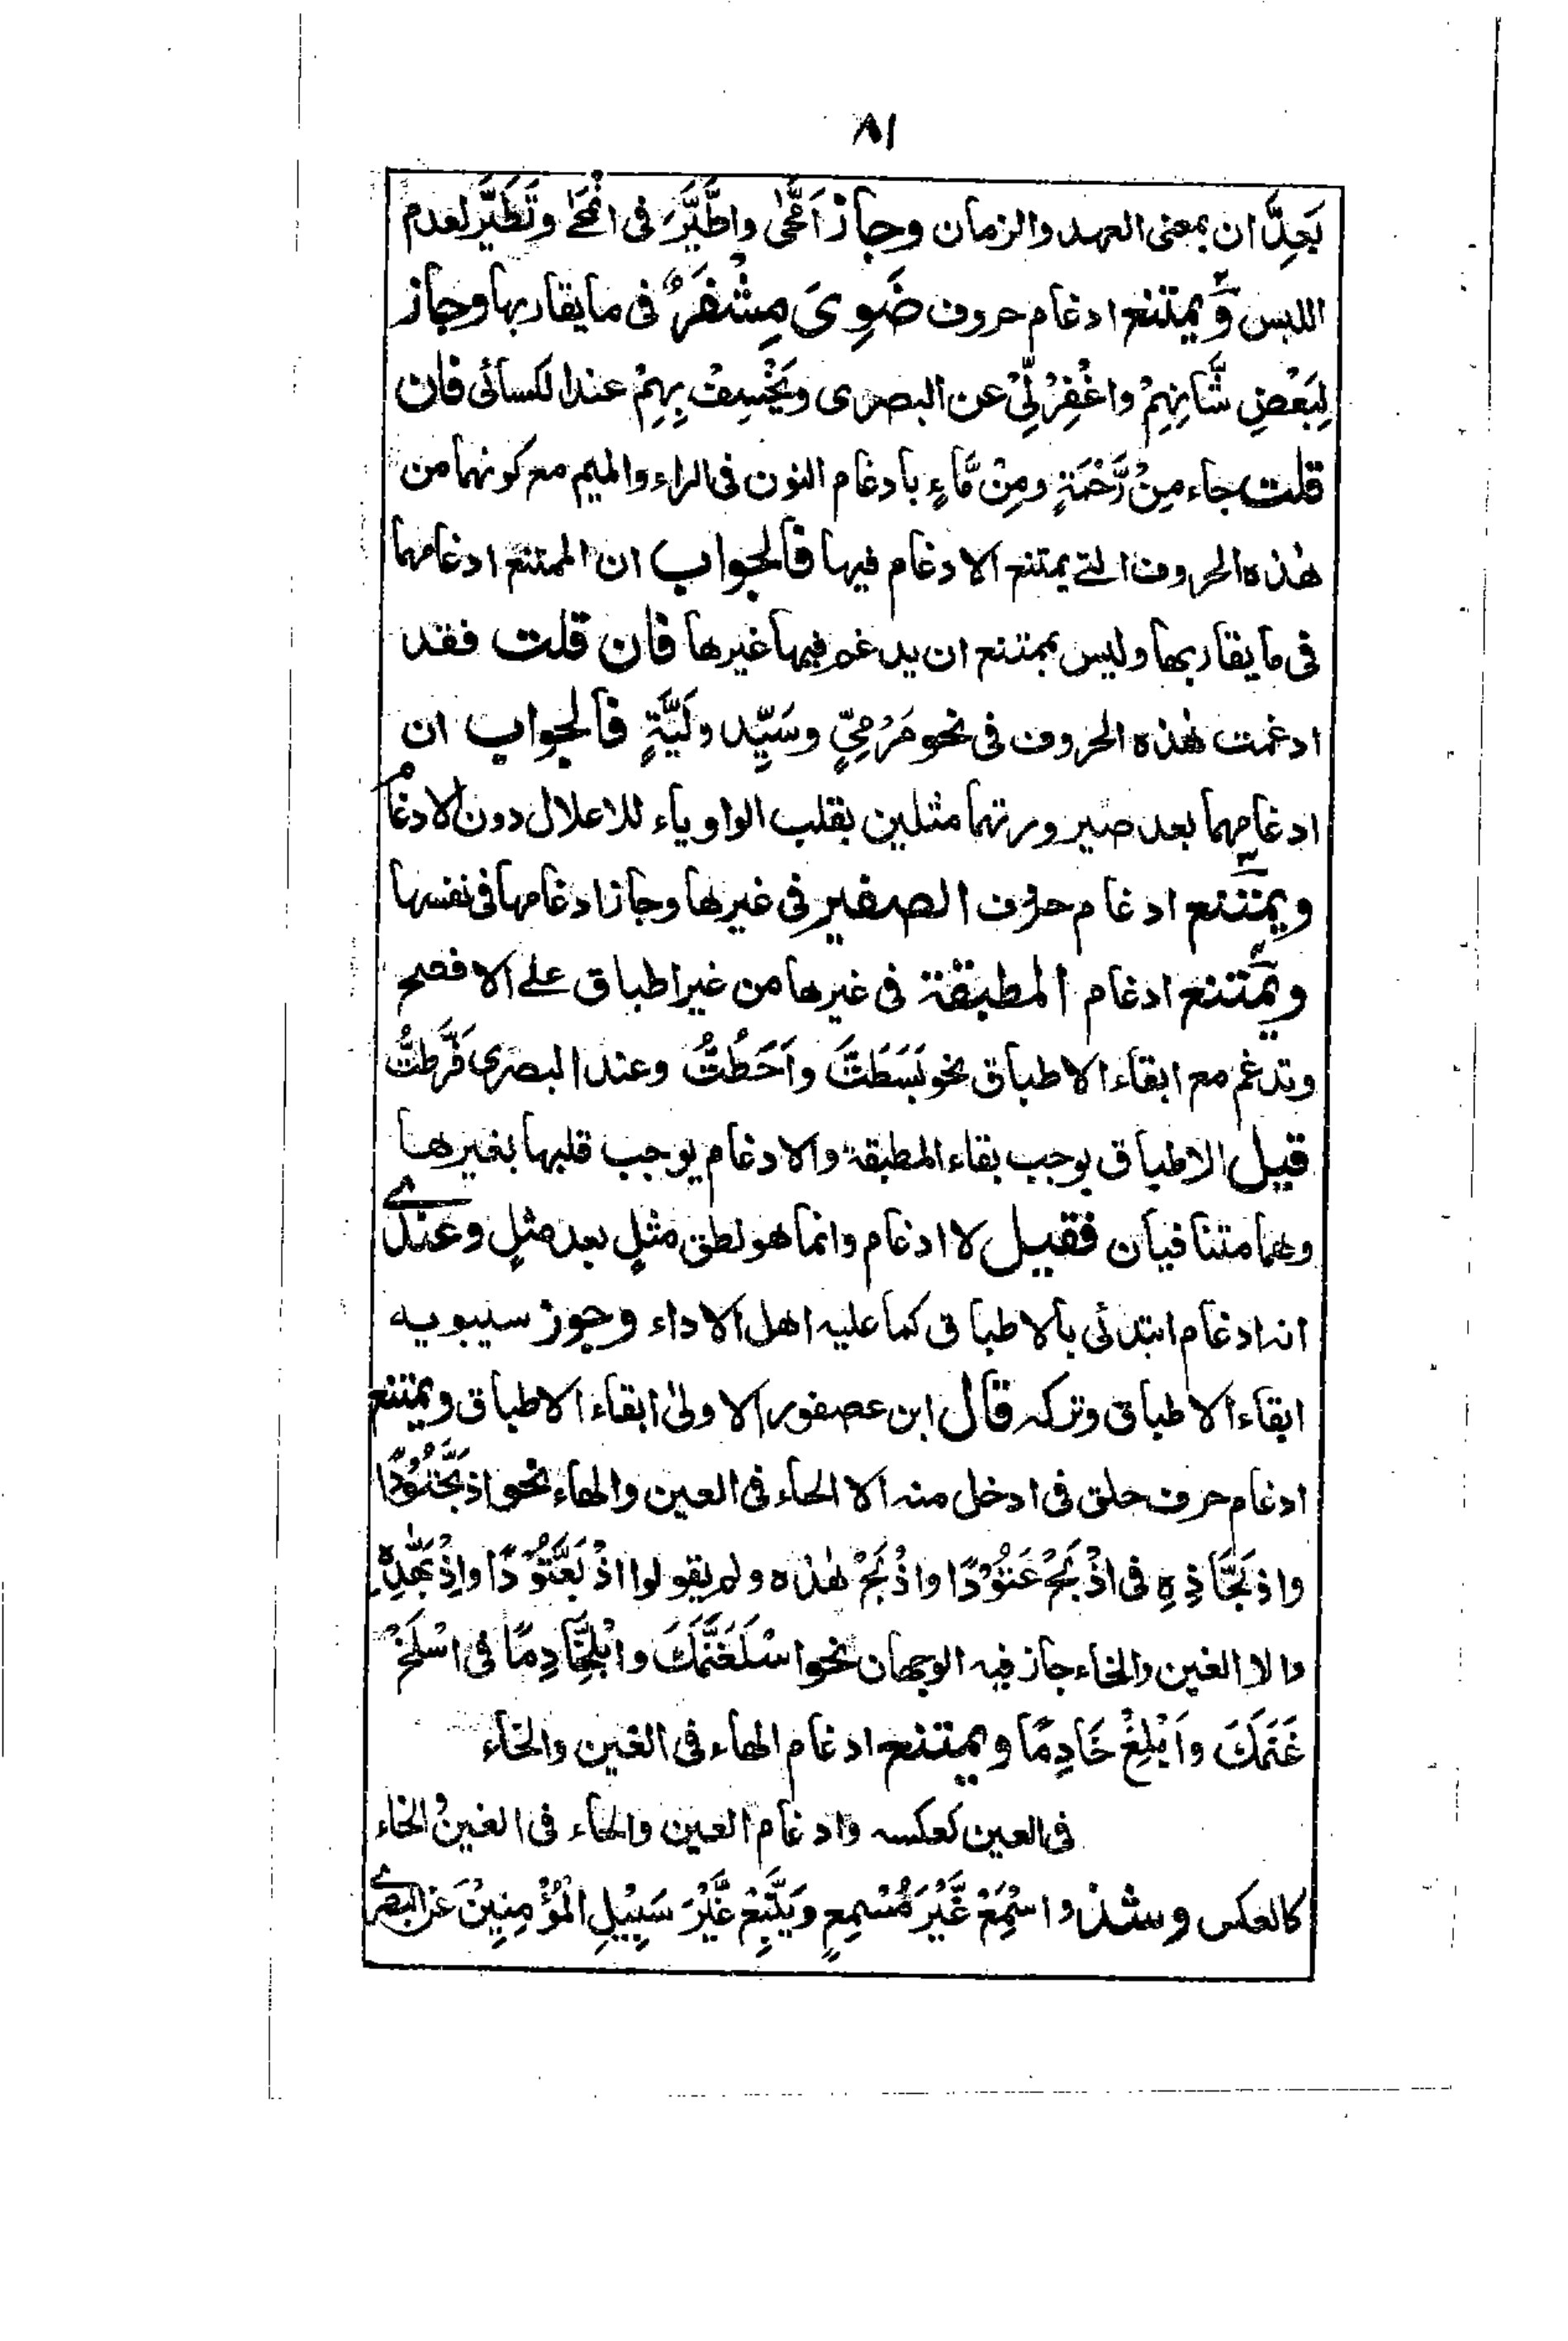 ٨١
بَعِدَّان بمعنى العهد والزمان وجاز اَمَّحٰى واطَّيَّرَ فى انْمَحٰے وتَطَيَّر لعدم
اللبس وَيمتنع ادغام حروف ضَوِىَ مِشْفَرٌ فى ما يقاربها وجاز
لِبَعْضِ شَّانِهِمْ واغْفِرْ لِّىْ عن البصرى ويَخْسِفْ بِهِمْ عند الكسائى فان
قلت جاء مِنْ رَّحْمَةٍ ومِنْ مَّاءٍ بادغام النون فى الراء والميم مع كونهما من
هٰذه الحروف التے يمتنع الادغام فيها فالجواب ان الممتنع ادغامها
فى ما يقاربها وليس بممتنع ان يدغم فيها غيرها فان قلت فقد
ادغمت هٰذه الحروف فى نحو مَرْمِىٍّ وسَيِّد ولَيَّةٍ فالجواب ان
ادغامهما بعد صيرورتهما مثلين بقلب الواو ياء للاعلال دون الادغام
ويمتنع ادغام حروف الصفير فى غيرها وجاز ادغامها فى نفسها
ويمتنع ادغام المطبقة فى غيرها من غير اطباق علے الافصح
وتدغم مع ابقاء الاطباق نحو بَسَطتَّ واَحَطتُّ وعند البصرى فَرَّطتُّ
قيل الاطباق يوجب بقاء المطبقة والادغام يوجب قلبها بغيرها
وهما متنافيان فقيل لا ادغام وانما هو نطق مثلٍ بعد مثلٍ وعندے
انه ادغام ابتدئى بالاطباق كما عليه اهل الاداء وجوز سيبويه
ابقاء الاطباق وتركه قال ابن عصفور الاولىٰ ابقاء الاطباق ويمتنع
ادغام حرف حلق فى ادخل منه الا الحاء فى العين والهاء نحو اذبَحَّتُوْدًا
واذبَحَّاذِهِ فى اذْبَحْ عَتُوْدًا واذْبَحْ هٰذه ولم يقولوا اذْبَعَّتُوْدًا واِذْبَهّٰذِهٖ
والا الغين والخاء جاز فيه الوجهان نحو اسْلَغَّنَمَكَ وابْلِخَّادِمًا فى اسْلَخْ
غَنَمَكَ واَبْلِغْ خَادِمًا ويمتنع ادغام الهاء فى الغين والخاء
فى العين كعكسه وادغام العين والحاء فى الغين والخاء
كالعكس وشذ واسْمَعْ غَّيْرَ مُسْمِعٍ ويَتَّبِعْ غَّيْرَ سَبِيْلِ الْمُؤْمِنِيْنَ عن البصرے